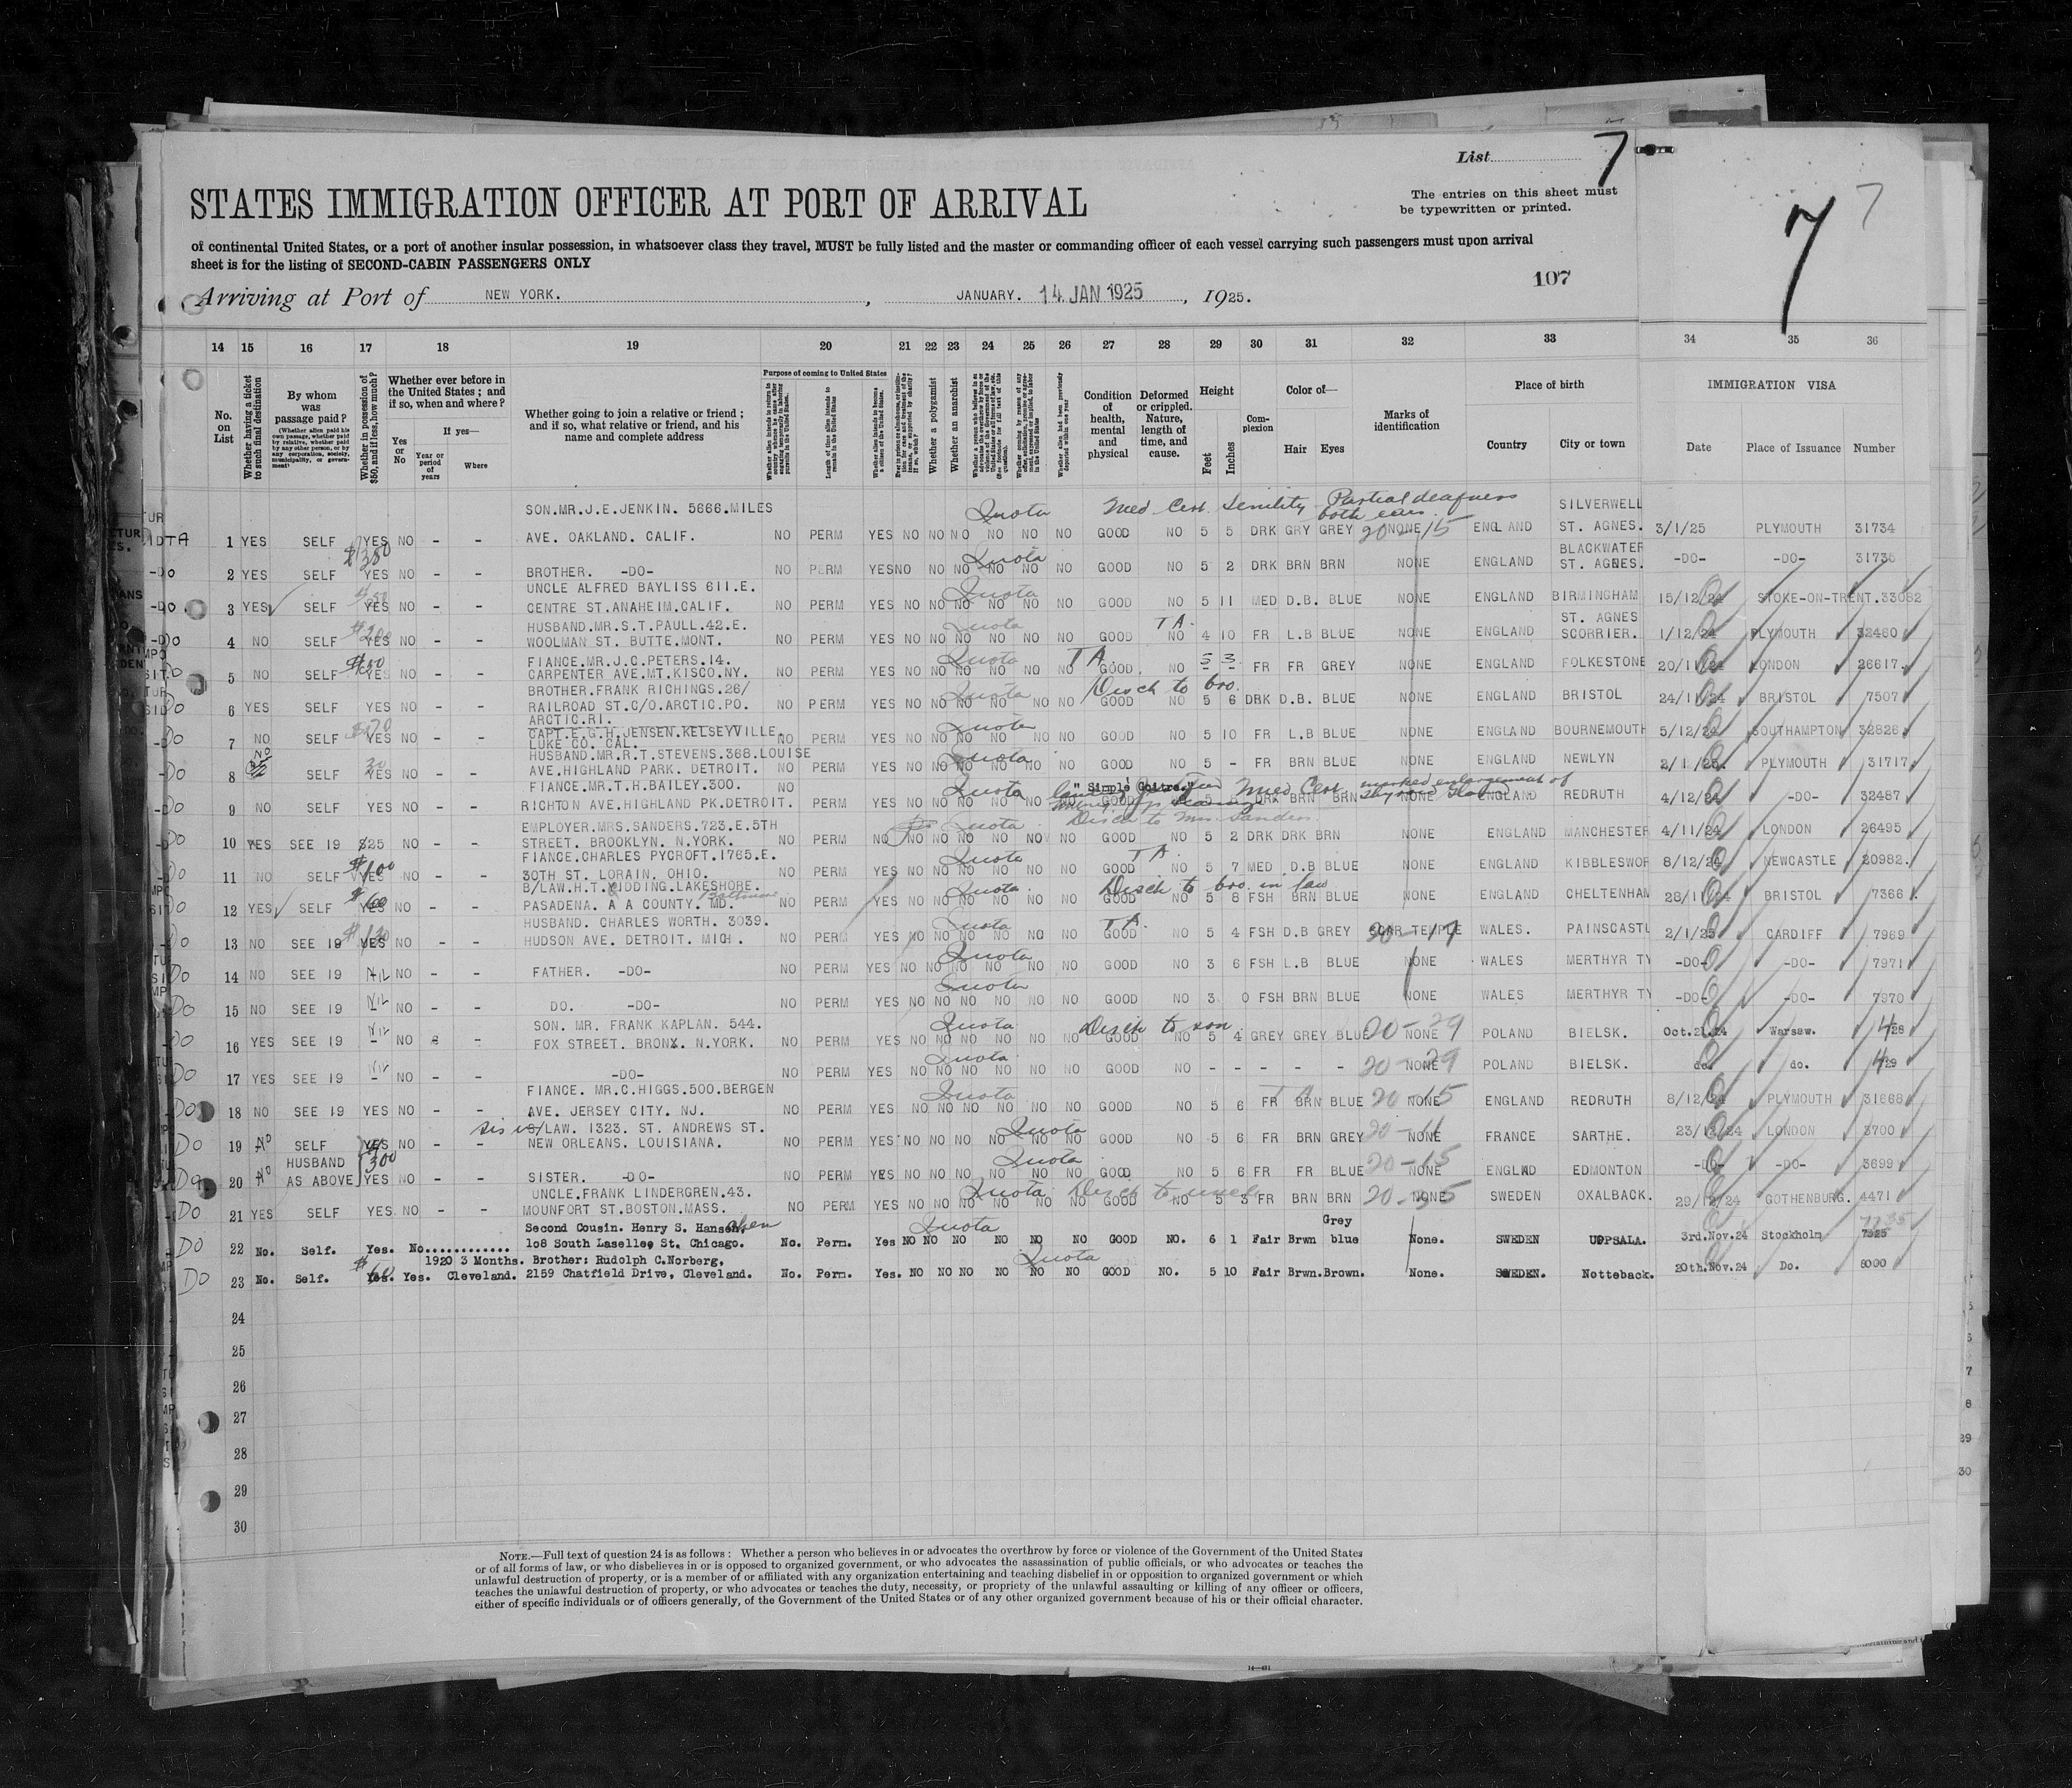 List 7
STATES IMMIGRATION OFFICER AT PORT OF ARRIVAL
The entries on this sheet must
be typewritten or printed.
7 7
of continental United States, or a port of another insular possession, in whatsoever class they travel, MUST be fully listed and the master or commanding officer of each vessel carrying such passengers must upon arrival
sheet is for the listing of SECOND-CABIN PASSENGERS ONLY
107
Arriving at Port of NEW YORK. , JANUARY. 14 JAN 1925 , 1925.
14 15 16 17 18 19 20 21 22 23 24 25 26 27 28 29 30 31 32 33 34 35 36
No. on List
Whether having a ticket to such final destination
By whom was passage paid?
(Whether alien paid his own passage, whether paid by relative, whether paid by any other person, or by any corporation, society, municipality, or government)
Whether in possession of $50, and if less, how much?
Whether ever before in the United States; and if so, when and where?
Yes or No
If yes—
Year or period of years
Where
Whether going to join a relative or friend; and if so, what relative or friend, and his name and complete address
Purpose of coming to United States
Length of time alien intends to remain in the United States
Whether alien intends to become a citizen of the United States
Whether a polygamist
Whether an anarchist
Whether alien had been previously deported within one year
Condition of health, mental and physical
Deformed or crippled. Nature, length of time, and cause.
Height
Feet
Inches
Complexion
Color of—
Hair
Eyes
Marks of identification
Place of birth
Country
City or town
IMMIGRATION VISA
Date
Place of Issuance
Number
SON.MR.J.E.JENKIN. 5666.MILES Quota Med Cert Senility Partial deafness both ears. SILVERWELL
1 YES SELF YES NO - - AVE. OAKLAND. CALIF. NO PERM YES NO NO NO NO NO NO GOOD NO 5 5 DRK GRY GREY NONE ENGLAND ST. AGNES. 3/1/25 PLYMOUTH 31734
$380 Quota BLACKWATER
2 YES SELF YES NO - - BROTHER. -DO- NO PERM YES NO NO NO NO NO NO GOOD NO 5 2 DRK BRN BRN NONE ENGLAND ST. AGNES. -DO- -DO- 31735
UNCLE ALFRED BAYLISS 611.E. Quota
3 YES SELF YES NO - - CENTRE ST.ANAHEIM.CALIF. NO PERM YES NO NO NO NO NO NO GOOD NO 5 11 MED D.B. BLUE NONE ENGLAND BIRMINGHAM 15/12/24 STOKE-ON-TRENT.33082
HUSBAND.MR.S.T.PAULL.42.E. Quota TA. ST. AGNES
4 NO SELF YES NO - - WOOLMAN ST. BUTTE.MONT. NO PERM YES NO NO NO NO NO NO GOOD NO 4 10 FR L.B BLUE NONE ENGLAND SCORRIER. 1/12/24 PLYMOUTH 32460
FIANCE.MR.J.C.PETERS.14. Quota TA
5 NO SELF YES NO - - CARPENTER AVE.MT.KISCO.NY. NO PERM YES NO NO NO NO NO NO GOOD. NO 5 3 FR FR GREY NONE ENGLAND FOLKESTONE 20/11/24 LONDON 26617.
BROTHER.FRANK RICHINGS.26/ Quota Disch to bro.
6 YES SELF YES NO - - RAILROAD ST.C/O.ARCTIC.PO. NO PERM YES NO NO NO NO NO NO GOOD NO 5 6 DRK D.B. BLUE NONE ENGLAND BRISTOL 24/11/24 BRISTOL 7507
ARCTIC.RI.
CAPT.E.G.H.JENSEN.KELSEYVILLE. Quota
7 NO SELF YES NO - - LUKE CO. CAL. NO PERM YES NO NO NO NO NO NO GOOD NO 5 10 FR L.B BLUE NONE ENGLAND BOURNEMOUTH 5/12/24 SOUTHAMPTON 32826
HUSBAND.MR.R.T.STEVENS.368.LOUISE Quota
8 NO SELF YES NO - - AVE.HIGHLAND PARK. DETROIT. NO PERM YES NO NO NO NO NO NO GOOD NO 5 - FR BRN BLUE NONE ENGLAND NEWLYN 2/1/25. PLYMOUTH 31717
FIANCE.MR.T.H.BAILEY.300. NO Quota "Simple Goitre." Med Cert marked enlargement of thyroid gland
9 NO SELF YES NO - - RICHTON AVE.HIGHLAND PK.DETROIT. PERM YES NO NO NO NO NO NO GOOD 5 DRK BRN BRN NONE ENGLAND REDRUTH 4/12/24 -DO- 32487
EMPLOYER.MRS.SANDERS.723.E.5TH Quota Disch to Mrs Sanders.
10 YES SEE 19 $25 NO - - STREET. BROOKLYN. N.YORK. NO PERM NO NO NO NO NO NO NO GOOD NO 5 2 DRK DRK BRN NONE ENGLAND MANCHESTER 4/11/24 LONDON 26495
FIANCE.CHARLES PYCROFT.1765.E. Quota TA.
11 NO SELF $100 YES NO - - 30TH ST. LORAIN. OHIO. NO PERM YES NO NO NO NO NO NO GOOD NO 5 7 MED D.B BLUE NONE ENGLAND KIBBLESWOR 8/12/24 NEWCASTLE 20982.
B/LAW.H.T.KIDDING.LAKESHORE. Quota Disch to bro. in law
12 YES SELF $60 YES NO - - PASADENA. A A COUNTY. MD. NO PERM YES NO NO NO NO NO NO GOOD NO 5 8 FSH BRN BLUE NONE ENGLAND CHELTENHAM 28/11/24 BRISTOL 7366
HUSBAND. CHARLES WORTH. 3039. Quota TA.
13 NO SEE 19 $130 YES NO - - HUDSON AVE. DETROIT. MICH. NO PERM YES NO NO NO NO NO NO GOOD NO 5 4 FSH D.B GREY SCAR TEMPLE WALES. PAINSCASTL 2/1/25 CARDIFF 7969
Quota
14 NO SEE 19 NIL NO - - FATHER. -DO- NO PERM YES NO NO NO NO NO NO GOOD NO 3 6 FSH L.B BLUE NONE WALES MERTHYR TY -DO- -DO- 7971
Quota
15 NO SEE 19 NIL NO - - DO. -DO- NO PERM YES NO NO NO NO NO NO GOOD NO 3 0 FSH BRN BLUE NONE WALES MERTHYR TY -DO- -DO- 7970
SON. MR. FRANK KAPLAN. 544. Quota Disch to son.
16 YES SEE 19 NIL - NO - - FOX STREET. BRONX. N.YORK. NO PERM YES NO NO NO NO NO NO GOOD NO 5 4 GREY GREY BLUE 20-29 NONE POLAND BIELSK. Oct.21.24 Warsaw. 428
Quota
17 YES SEE 19 NIL - NO - - -DO- NO PERM YES NO NO NO NO NO NO GOOD NO - - - - - 20-29 NONE POLAND BIELSK. do. do. 429
FIANCE. MR.C.HIGGS.500.BERGEN Quota TA
18 NO SEE 19 YES NO - - AVE. JERSEY CITY. NJ. NO PERM YES NO NO NO NO NO NO GOOD NO 5 6 FR BRN BLUE NONE ENGLAND REDRUTH 8/12/24 PLYMOUTH 31668
/LAW. 1323. ST. ANDREWS ST. Quota
19 NO SELF YES NO - - NEW ORLEANS. LOUISIANA. NO PERM YES NO NO NO NO NO NO GOOD NO 5 6 FR BRN GREY 20-11 NONE FRANCE SARTHE. 23/12/24 LONDON 3700
HUSBAND $300 Quota
20 NO AS ABOVE YES NO - - SISTER. -DO- NO PERM YES NO NO NO NO NO NO GOOD NO 5 6 FR FR BLUE 20-15 NONE ENGLAND EDMONTON -DO- -DO- 3699
UNCLE.FRANK LINDERGREN.43. Quota Disch to uncle
21 YES SELF YES NO - - MOUNFORT ST.BOSTON.MASS. NO PERM YES NO NO NO NO NO NO GOOD NO 5 3 FR BRN BRN NONE SWEDEN OXALBACK. 29/12/24 GOTHENBURG. 4471
Second Cousin. Henry S. Hansen. Quota Grey
22 No. Self. Yes. No............ 108 South Laselle, St. Chicago. No. Perm. Yes NO NO NO NO NO NO GOOD NO. 6 1 Fair Brwn blue None. SWEDEN UPPSALA. 3rd.Nov.24 Stockholm 7325
1920 3 Months. Brother: Rudolph C.Norberg, Quota
23 No. Self. $60 Yes. Yes. Cleveland. 2159 Chatfield Drive, Cleveland. No. Perm. Yes. NO NO NO NO NO NO GOOD NO. 5 10 Fair Brwn. Brown. None. SWEDEN. Notteback. 20th.Nov.24 Do. 8000
24
25
26
27
28
29
30
NOTE.—Full text of question 24 is as follows: Whether a person who believes in or advocates the overthrow by force or violence of the Government of the United States
or of all forms of law, or who disbelieves in or is opposed to organized government, or who advocates the assassination of public officials, or who advocates or teaches the
unlawful destruction of property, or is a member of or affiliated with any organization entertaining and teaching disbelief in or opposition to organized government or which
teaches the unlawful destruction of property, or who advocates or teaches the duty, necessity, or propriety of the unlawful assaulting or killing of any officer or officers,
either of specific individuals or of officers generally, of the Government of the United States or of any other organized government because of his or their official character.